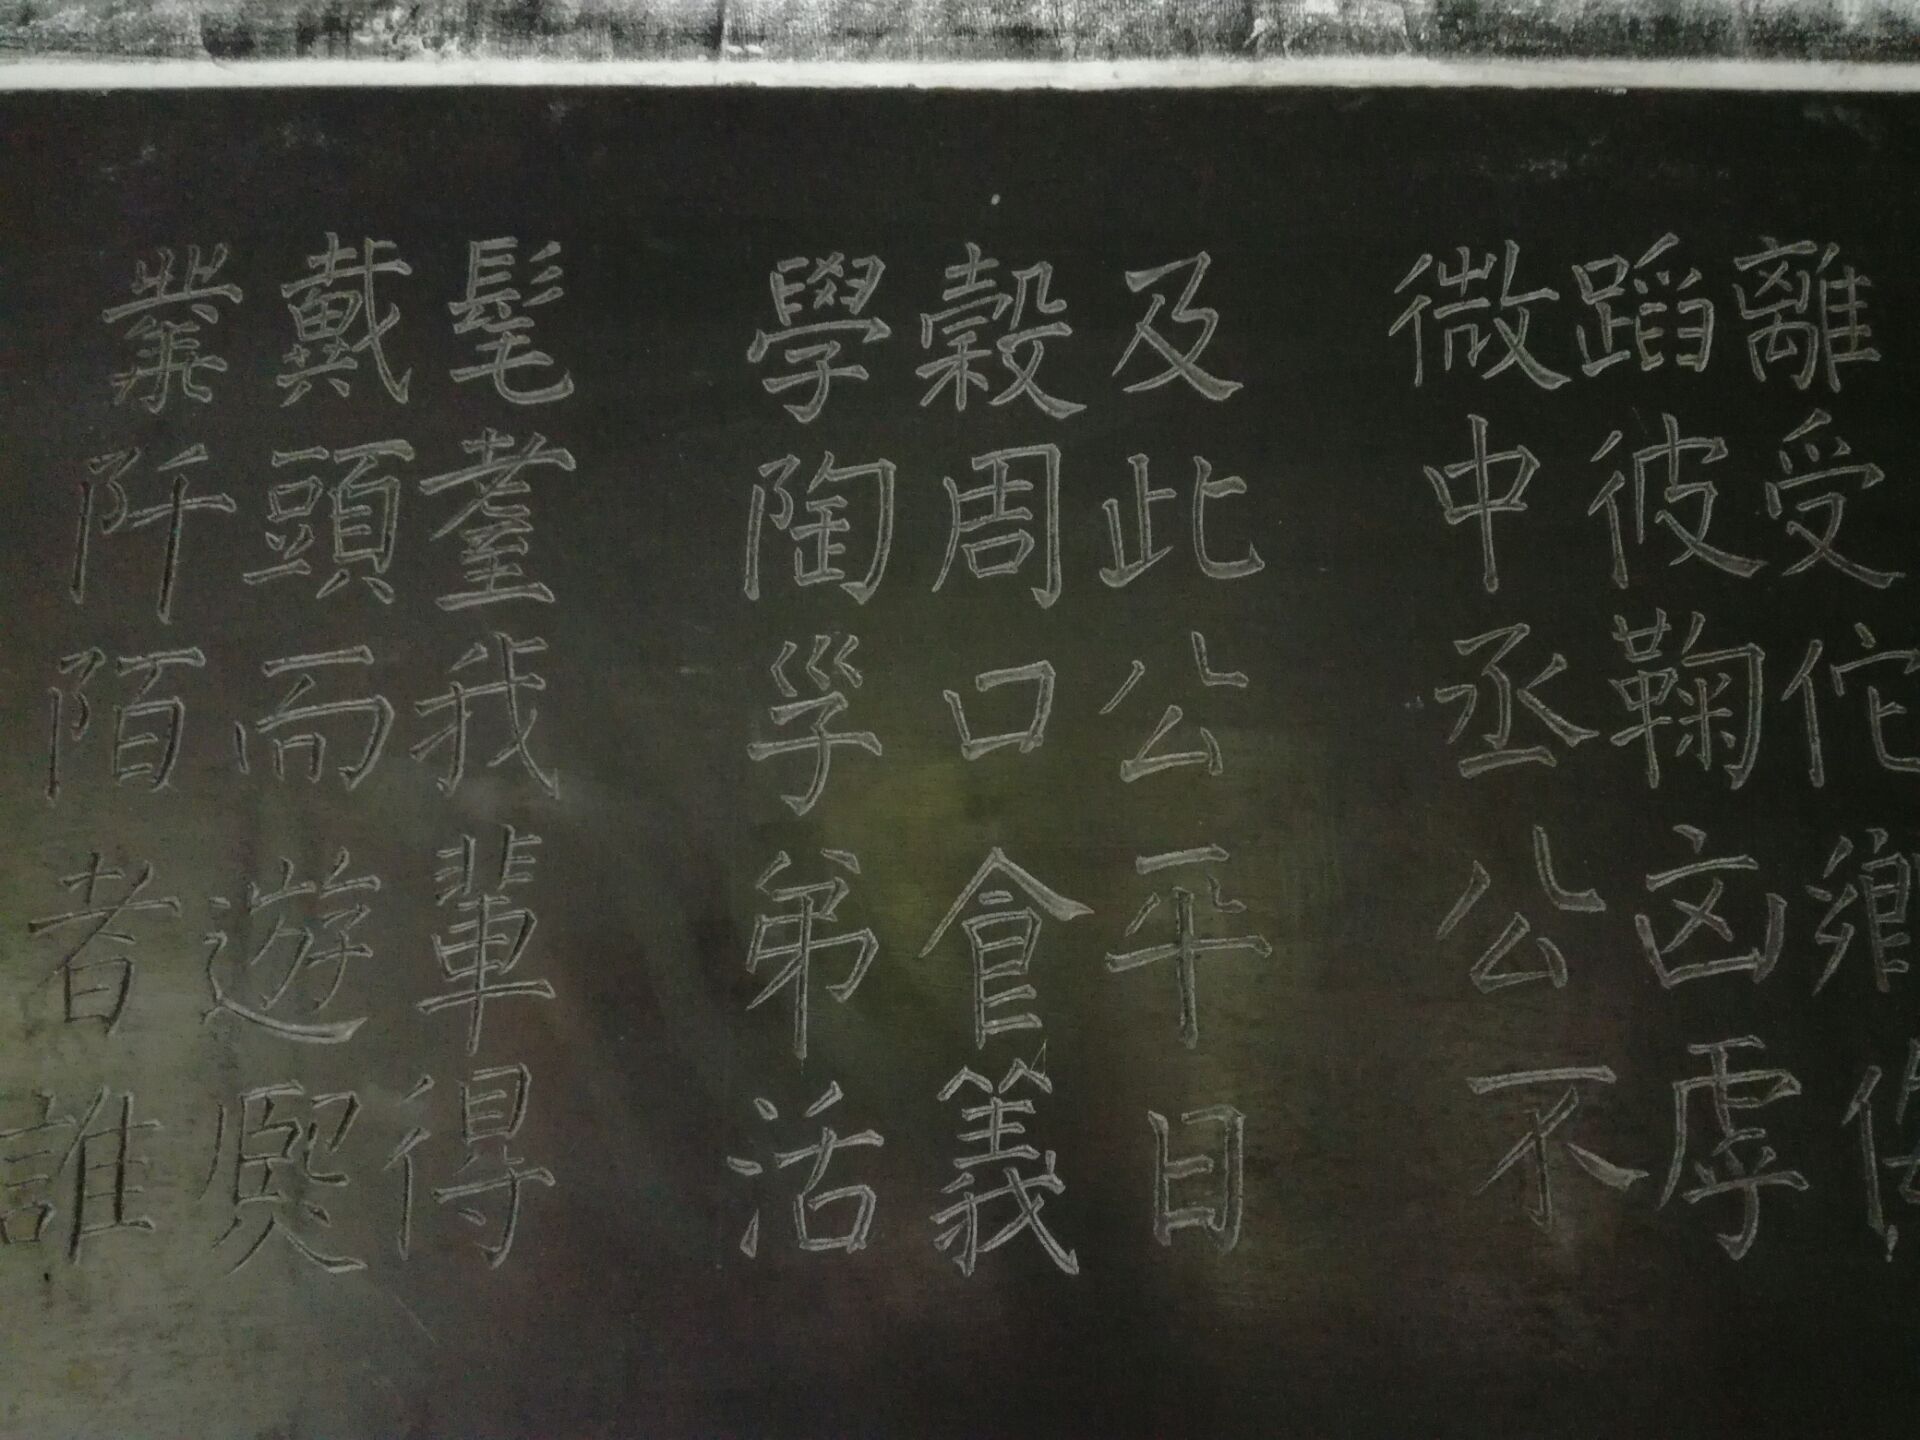 離受佗鄉
蹈彼鞠凶虐
微中丞公不
及此公平日
穀周口食義
學陶孚弟活
髦耋我輩得
戴頭而遨熙
業阡陌者誰